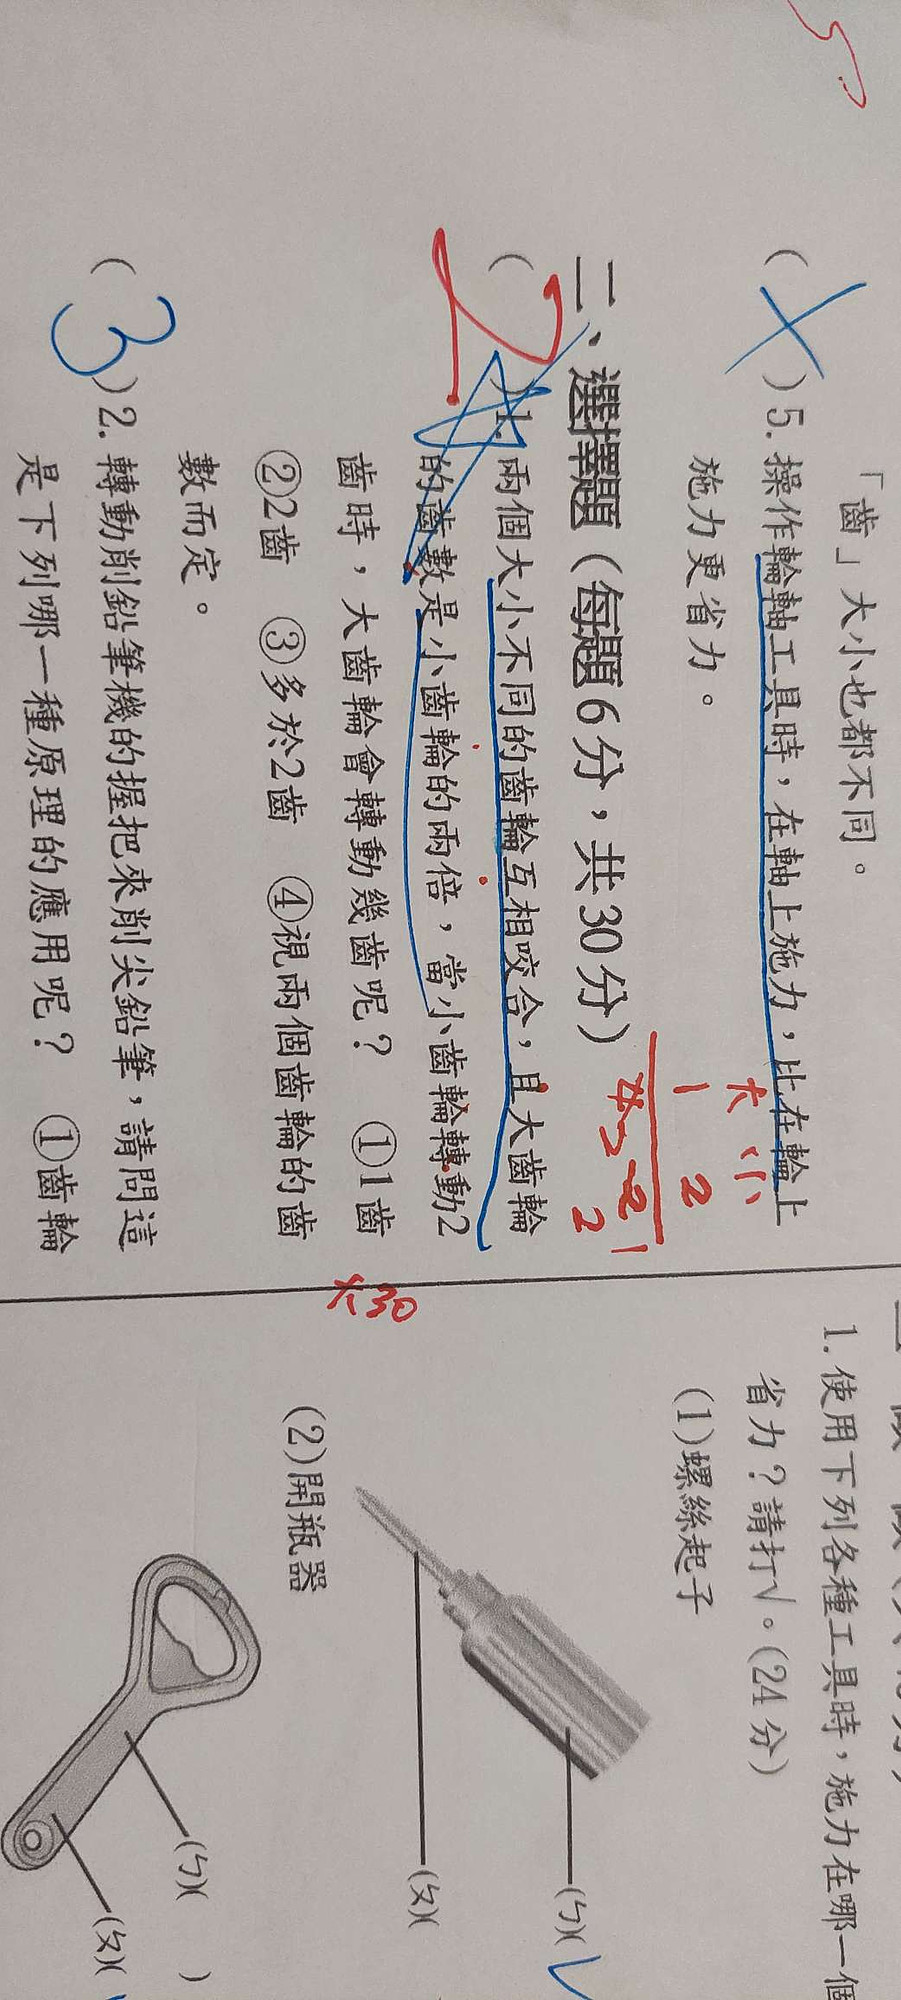 「齒」大小也都不同。
(X)5.操作輪軸工具時，在軸上施力，比在輪上
施力更省力。
大 小
1 2
2
二、選擇題（每題6分，共30分）
(2)1.兩個大小不同的齒輪互相咬合，且大齒輪
的齒數是小齒輪的兩倍，當小齒輪轉動2
齒時，大齒輪會轉動幾齒呢？ ①1齒
②2齒 ③多於2齒 ④視兩個齒輪的齒
數而定。
(3)2.轉動削鉛筆機的握把來削尖鉛筆，請問這
是下列哪一種原理的應用呢？ ①齒輪
30
1.使用下列各種工具時，施力在哪一個
省力？請打√。(24分)
(1)螺絲起子
(ㄅ)(✓
(ㄆ)(
(2)開瓶器
(ㄅ)( )
(ㄆ)(